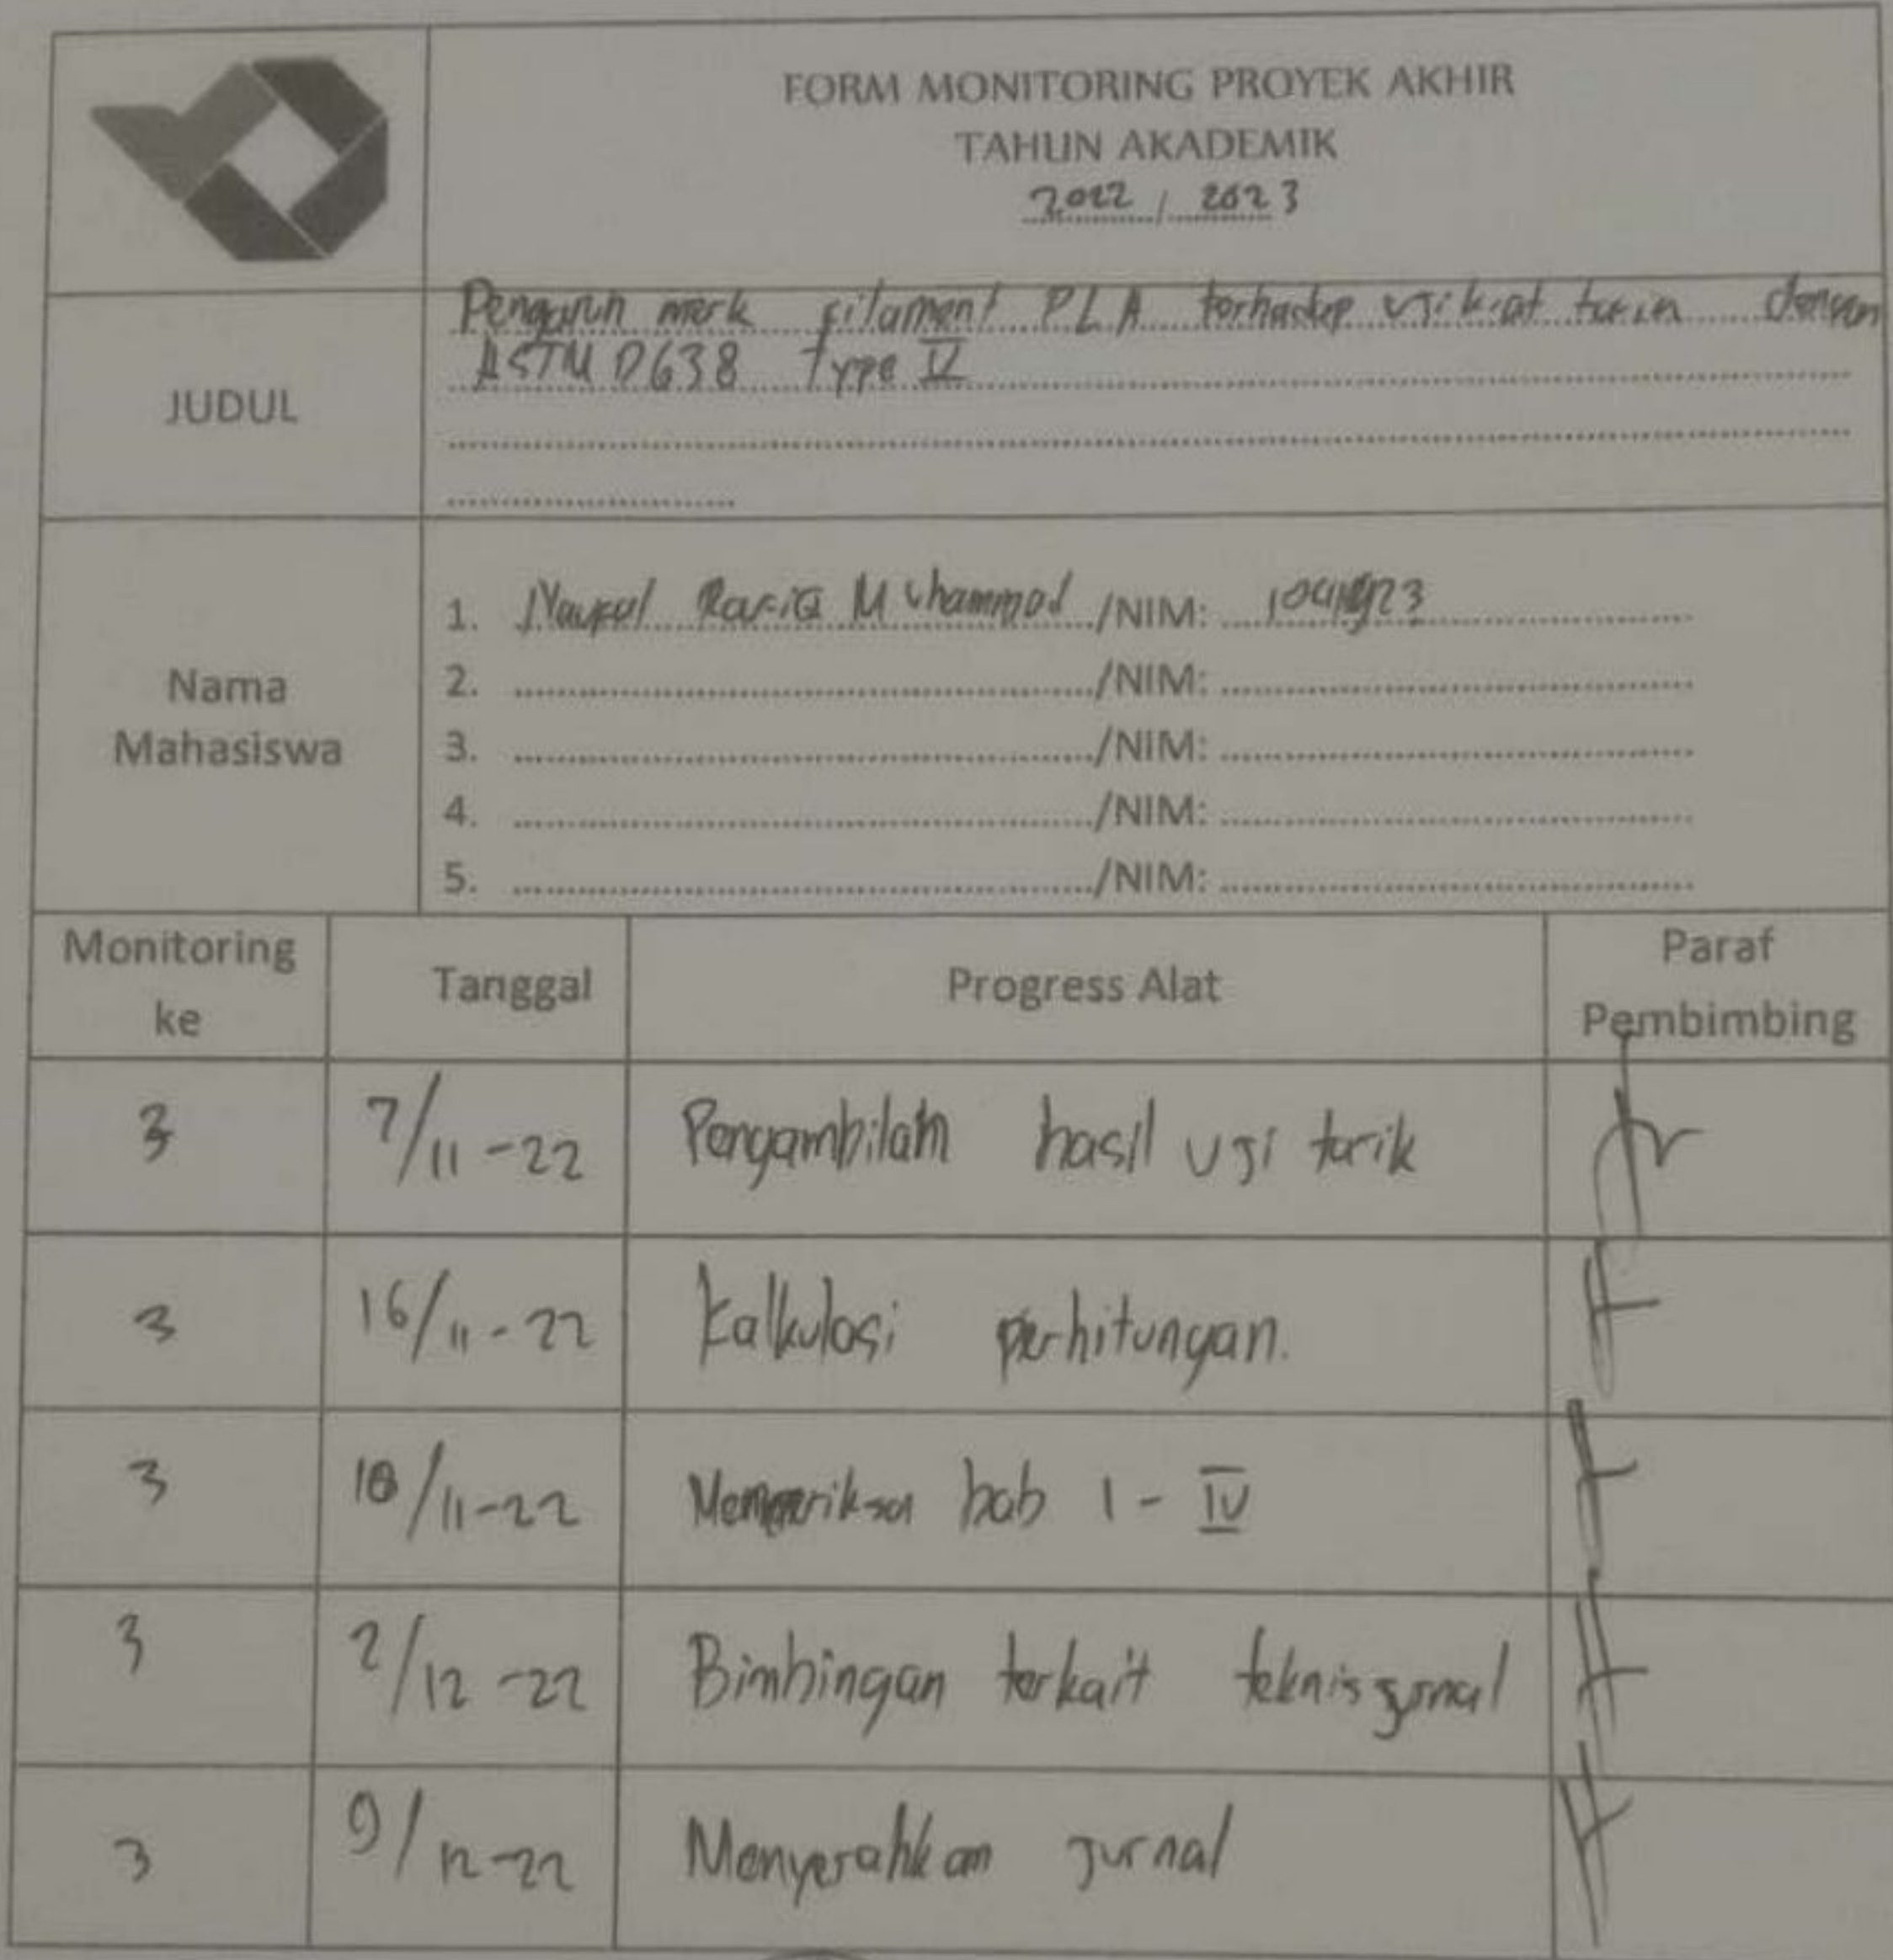 FORM MONITORING PROYEK AKHIR
TAHUN AKADEMIK
2022 / 2023
JUDUL
Pengaruh merk filament PLA terhadap uji kuat tarik dengan
ASTM D638 Type IV
Nama
Mahasiswa
1. Naufal Rafiq Muhammad /NIM:
2. /NIM:
3. /NIM:
4. /NIM:
5. /NIM:
Monitoring
ke
Tanggal
Progress Alat
Paraf
Pembimbing
3 7/11-22 Pengambilan hasil uji tarik
3 16/11-22 Kalkulasi perhitungan.
3 18/11-22 Memeriksa bab 1 - IV
3 2/12-22 Bimbingan terkait teknis jurnal
3 9/12-22 Menyerahkan jurnal